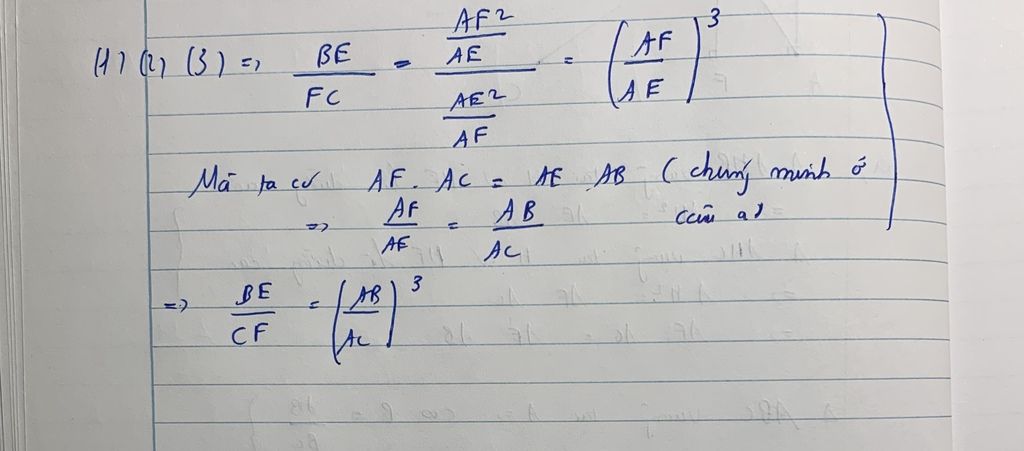 (1) (2) (3) => BE/FC = (AF²/AE)/(AE²/AF) = (AF/AE)³
Mà ta có AF. AC = AE. AB (chứng minh ở
=> AF/AE = AB/AC câu a)
=> BE/CF = (AB/AC)³